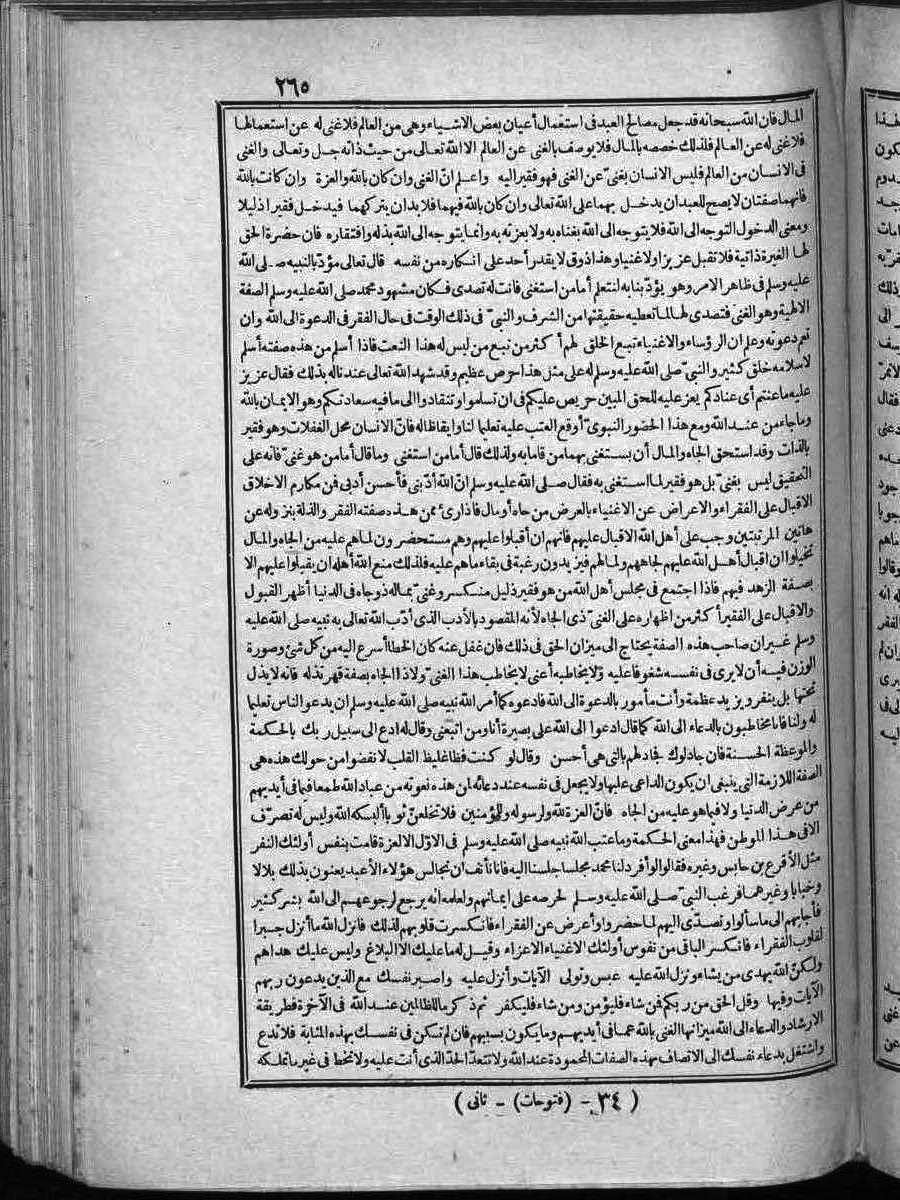 ٢٦٥
المال فان الله سبحانه قد جعل مصالح العبد فى استعمال أعيان بعض الاشياء وهى من العالم فلا غنى له عن استعمالها
فلا غنى له عن العالم فلذلك خصصه بالمال فلا يوصف بالغنى عن العالم الا الله تعالى من حيث ذاته جل وتعالى والغنى
فى الانسان من العالم فليس الانسان بغنىّ عن الغنى فهو فقير اليه واعلم انّ الغنى وان كان بالله والعزة وان كانت بالله
فانهما صفتان لا يصح للعبد ان يدخل بهما على الله تعالى وان كان بالله فيهما فلا بد ان يتركهما فيدخل فقيرا ذليلا
ومعنى الدخول التوجه الى الله فلا يتوجه الى الله بغناه به ولا بعزته به وانما يتوجه الى الله بذله وافتقاره فان حضرة الحق
لها الغيرة ذاتية فلا تقبل عزيزا ولا غنيا وهذا ذوق لا يقدر أحد على انكاره من نفسه قال تعالى مؤدّبا لنبيه صلى الله
عليه وسلم فى ظاهر الامر وهو يؤدّبنا به لنتعلم أما من استغنى فانت له تصدى فكان مشهود محمد صلى الله عليه وسلم الصفة
الالهية وهو الغنى فتصدى لها لما تعطيه حقيقتها من الشرف والنبىّ فى ذلك الوقت فى حال الفقر فى الدعوة الى الله وان
تعم دعوته وعلم ان الرؤساء والاغنياء تبع الخلق لهم أكثر من تبع من ليس له هذا النعت فاذا أسلم من هذه صفته أسلم
لاسلامه خلق كثير والنبىّ صلى الله عليه وسلم له على مثل هذا حرص عظيم وقد شهد الله تعالى عند ناله بذلك فقال عزيز
عليه ما عنتم أى عنادكم يعز عليه للحق المبين حريص عليكم فى ان تسلموا وتنقادوا الى ما فيه سعادتكم وهو الايمان بالله
وما جاء من عند الله ومع هذا الحضور النبوىّ أوقع العتب عليه تعليما لنا وايقاظا له فانّ الانسان محل الغفلات وهو فقير
بالذات وقد استحق الجاه والمال أن يستغنى بهما من قاما به ولذلك قال أما من استغنى وما قال أما من هو غنىّ فانه على
التحقيق ليس بغنىّ بل هو فقير لما استغنى به فقال صلى الله عليه وسلم انّ الله أدّبنى فأحسن أدبى فمن مكارم الاخلاق
الاقبال على الفقراء والاعراض عن الاغنياء بالعرض من جاه أو مال فاذا رئ ممن هذه صفته الفقر والذلة بنزوله عن
هاتين المرتبتين وجب على أهل الله الاقبال عليهم فانهم ان أقبلوا عليهم وهم مستحضرون لما هم عليه من الجاه والمال
تخيلوا ان اقبال أهل الله عليهم لجاههم ولمالهم فيزيدون رغبة فى بقاء ما هم عليه فلذلك منع الله أهله ان يقبلوا عليهم الا
بصفة الزهد فيهم فاذا اجتمع فى مجلس أهل الله من هو فقير ذليل منكسر وغنىّ بماله ذو جاه فى الدنيا أظهر القبول
والاقبال على الفقير أكثر من اظهاره على الغنىّ ذى الجاه لأنه المقصود بالأدب الذى أدّب الله تعالى به نبيه صلى الله عليه
وسلم غير ان صاحب هذه الصفة يحتاج الى ميزان الحق فى ذلك فان غفل عنه كان الخطا أسرع اليه من كل شئ وصورة
الوزن فيه أن لا يرى فى نفسه شغوفا عليه ولا يخاطبه أعنى لا يخاطب هذا الغنىّ ولا ذا الجاه بصفة قهر تذله فانه لا يذل
تحتها بل ينفر ويزيد عظمة وأنت مأمور بالدعوة الى الله فادعوه كما أمر الله نبيه صلى الله عليه وسلم ان يدعو الناس تعليما
له ولنا فانا مخاطبون بالدعاء الى الله كما قال ادعوا الى الله على بصيرة أنا ومن اتبعنى وقال له ادع الى سبيل ربك بالحكمة
والموعظة الحسنة فان جادلوك فجادلهم بالتى هى أحسن وقال لو كنت فظا غليظ القلب لانفضوا من حولك هذه هى
الصفة اللازمة التى ينبغى ان يكون الداعى عليها ولا يجعل فى نفسه عند دعائه لمن هذه نعوته من عباد الله طمعا فيما فى أيديهم
من عرض الدنيا ولا فيما هو عليه من الجاه فانّ العزة لله ولرسوله وللمؤمنين فلا تخلعنّ ثوبا ألبسكه الله وليس له تصرّف
الا فى هذا الموطن فهذا معنى الحكمة وما عتب الله نبيه صلى الله عليه وسلم فى الاوّل الا لعزة قامت بنفس أولئك النفر
مثل الأقرع بن حابس وغيره فقالوا لو أفردلنا محمد مجلسا جلسنا اليه فانا نأنف ان نجالس هؤلاء الأعبد يعنون بذلك بلالا
وخبابا وغيرهما فرغب النبىّ صلى الله عليه وسلم لحرصه على ايمانهم ولعلمه انه يرجع لرجوعهم الى الله بشر كثير
فأجابهم الى ما سألوا وتصدّى اليهم لما حضروا وأعرض عن الفقراء فانكسرت قلوبهم لذلك فانزل الله ما أنزل جبرا
لقلوب الفقراء فانكسر الباقى من نفوس أولئك الاغنياء الاعزاء وقيل له ما عليك الا البلاغ وليس عليك هداهم
ولكنّ الله يهدى من يشاء ونزل الله عليه عبس وتولى الآيات وأنزل عليه واصبر نفسك مع الذين يدعون ربهم
الآيات وفيها وقل الحق من ربكم فمن شاء فليؤمن ومن شاء فليكفر ثم ذكر ما للظالمين عند الله فى الآخرة فطريقة
الارشاد والدعاء الى الله ميزانها الغنى بالله عما فى أيديهم وما يكون بسببهم فان لم تكن فى نفسك بهذه المثابة فلا تدع
واشتغل بدعاء نفسك الى الاتصاف بهذه الصفات المحمودة عند الله ولا تتعدّ الحدّ الذى أنت عليه ولا تخط فى غير ما تملكه
( ٣٤ - (فتوحات) - ثانى )